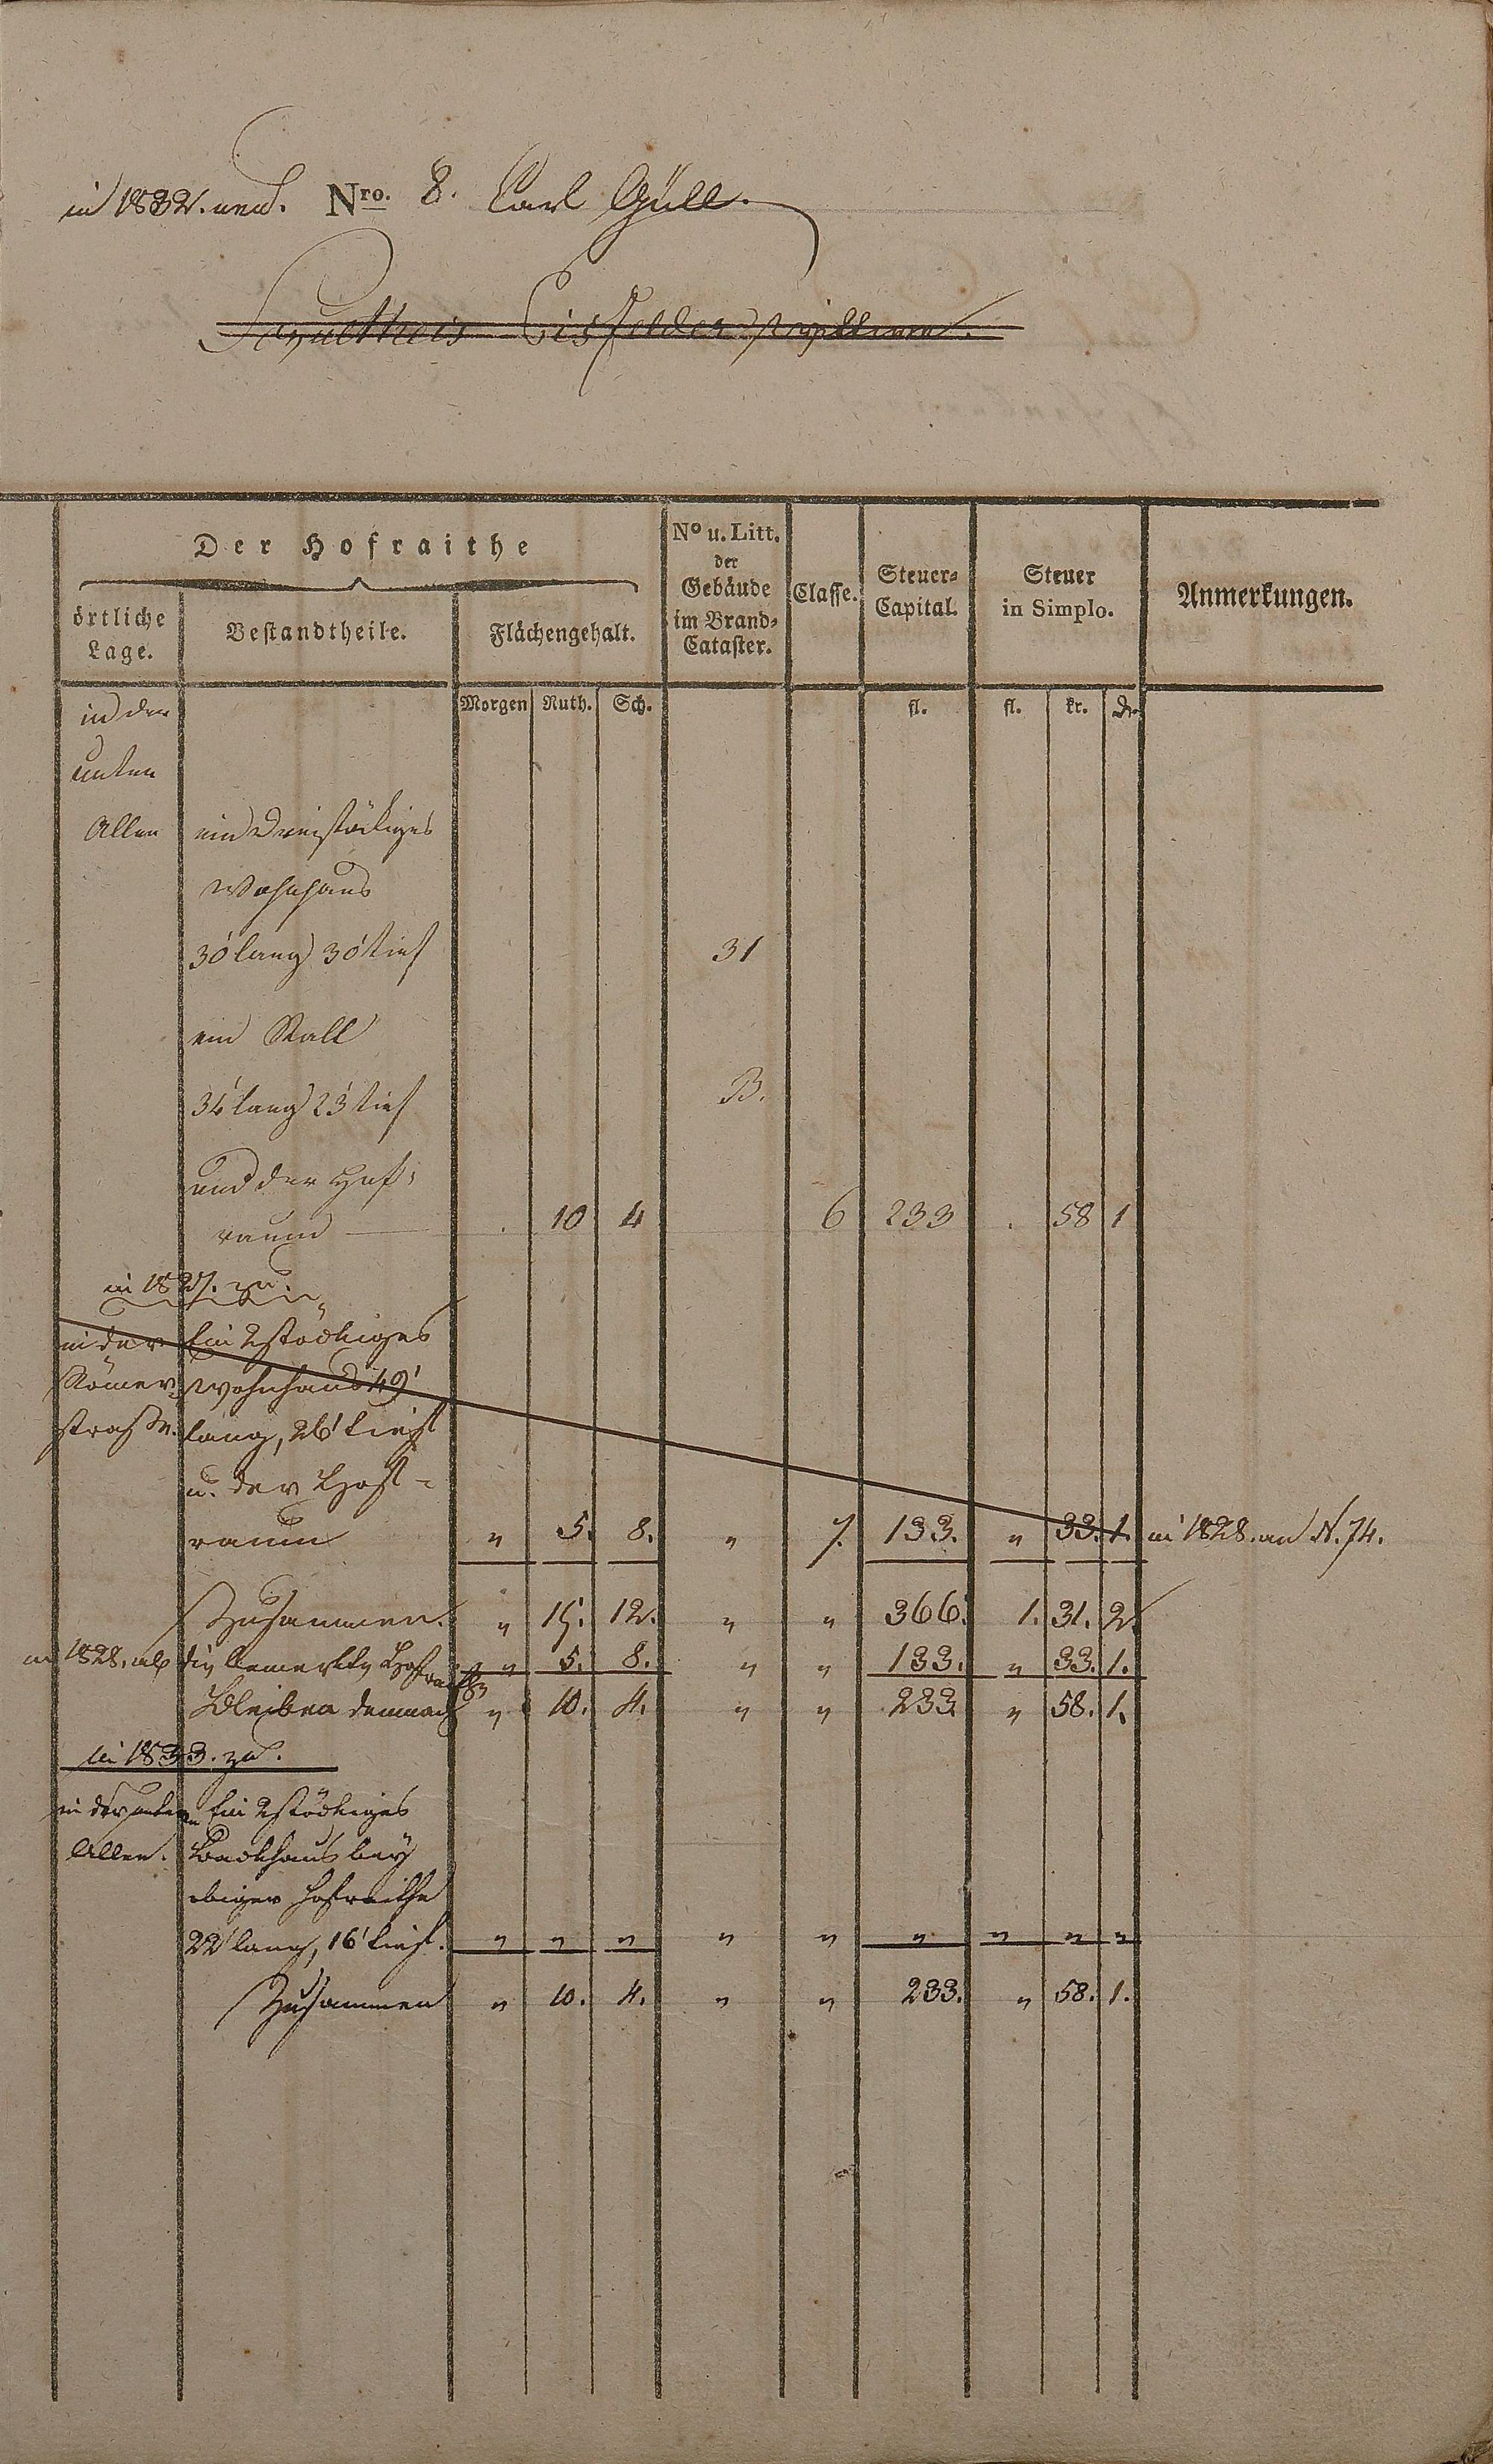 in 1832. neu. Nro. 8. Carl Güll.
Schultheis Eisfelder
Der Hofraithe
örtliche Lage.
Bestandtheile.
Flächengehalt.
No u. Litt. der Gebäude im Brand-Cataster.
Classe.
Steuer-Capital.
Steuer in Simplo.
Anmerkungen.
Morgen Ruth. Sch. fl. fl. kr. dr.
in der
unten
Allee ein dreistöckiges
Wohnhaus
30' lang 30' tief 31
ein Stall
34' lang 23' tief B.
und der Hof-
raum . 10 4 6 233 . 58 1
in 1827. zu.
in der Ein 2stöckiges
Römer- Wohnhaus 49'
straße. lang, 26' tief
u. der Hof-
raum " 5. 8. " 7. 133. " 33. 1. in 1828. an N. 74.
Zusammen. " 15. 12. " " 366. 1. 31. 2.
in 1828. ab die bemerkte Hofraithe " 5. 8. " " 133. " 33. 1.
Bleiben demnach " 10. 4. " " 233. " 58. 1.
in 1833. zu.
in der unten Ein 2stöckiges
Allee. Backhaus bey
obiger Hofraithe
22' lang, 16' tief. " " " " " " " " "
Zusammen " 10. 4. " " 233. " 58. 1.